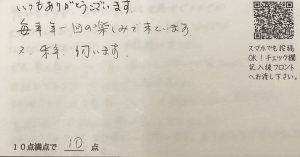 いつもありがとうございます。
毎年年一回の楽しみで来ています
又、来年、伺います。
スマホでも投稿
OK!チェック欄
記入後フロント
へお渡し下さい。
10点満点で 10 点